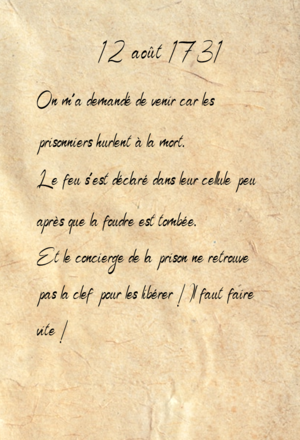 12 août 1731
On m'a demandé de venir car les
prisonniers hurlent à la mort.
Le feu s'est déclaré dans leur cellule peu
après que la foudre est tombée.
Et le concierge de la prison ne retrouve
pas la clef pour les libérer ! Il faut faire
vite !